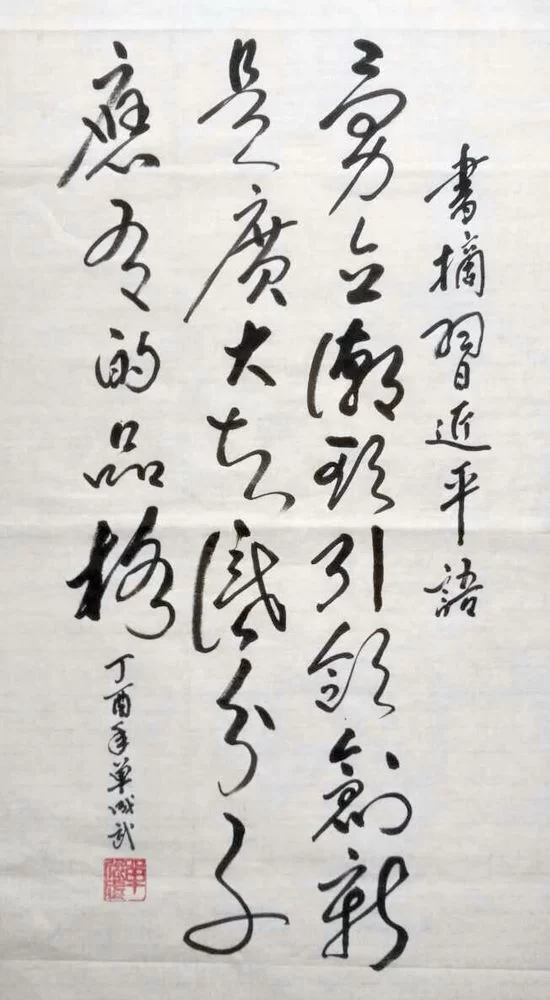 書摘習近平語
勇立潮頭引領創新
是廣大知識分子
應有的品格
丁酉年單成武